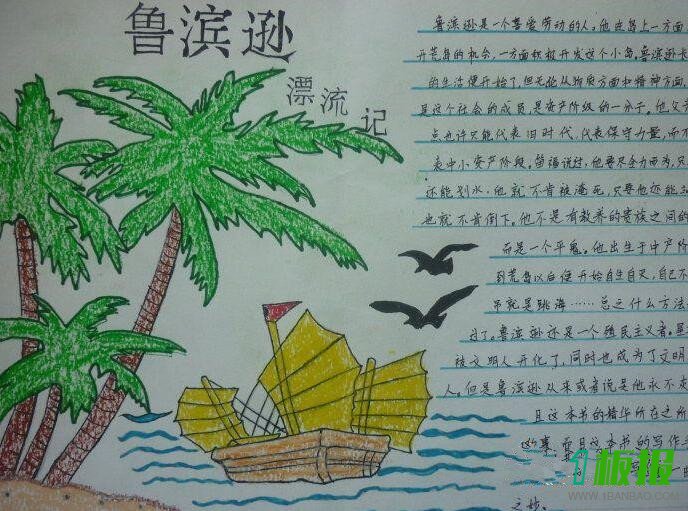 鲁滨逊
漂流记
鲁滨逊是一个喜爱劳动的人。他在岛上一方面
开荒岛的机会，一方面积极开发这个小岛，鲁滨逊
的生活便开始了，但无论从物质方面和精神方面，
是这个社会的成员，是资产阶级的一分子。他
点也许只能代表旧时代，代表保守力量，而不
表中小资产阶段。笛福说过，他要尽全力而为，只
还能划水，他就不肯被淹死，只要他还能
也就不肯倒下。他不是有教养的贵族之间的
而是一个平凡。他出生于中产阶
到荒岛以后便开始自生自灭，自己不
吊就是跳海……总之什么方法
过了。鲁滨逊还是一个殖民主义者。星
被文明人开化了，同时也成为了文明
人。但是鲁滨逊从来或者说是他永不
且这本书的精华所在之所
而且这本书的写作
的
之妙。
1板报
WWW.1BANBAO.COM